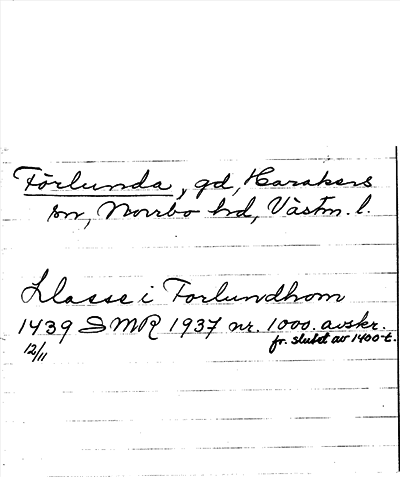 Förlunda, gd, Harakers
sn, Norrbo hd, Västm. l.
Lasse i Forlundhom
1439 SMR 1937 nr. 1000. avskr.
12/11 fr. slutet av 1400-t.